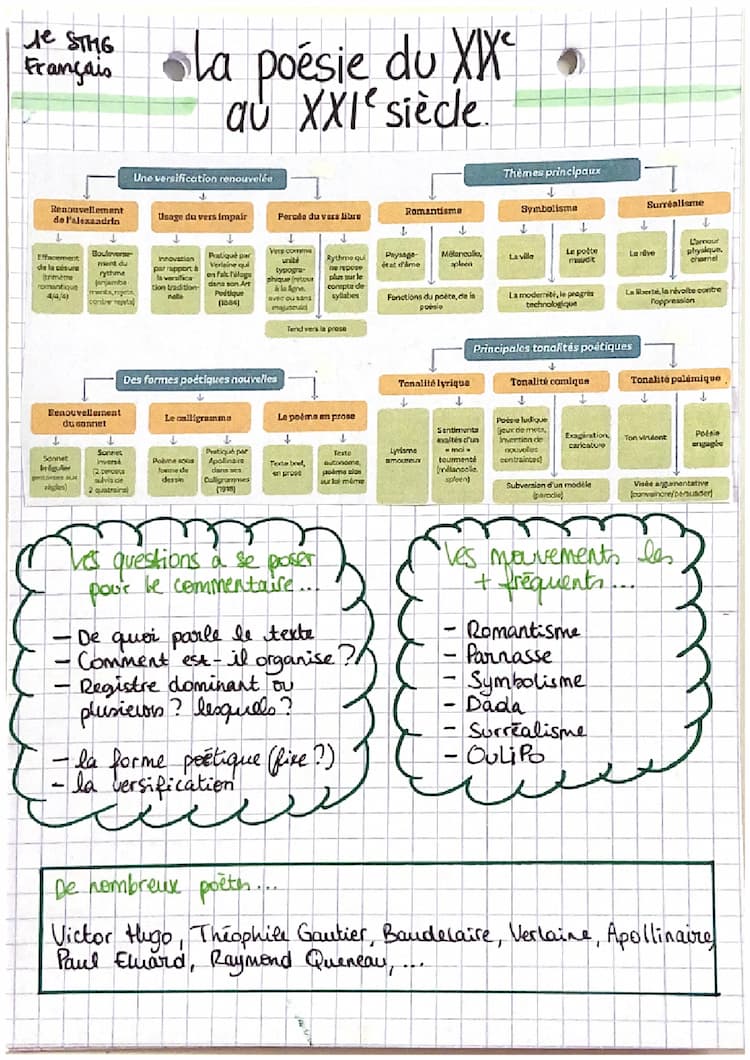 1e STMG
Français
La poésie du XIXe
au XXIe siècle.
Une versification renouvelée
Renouvellement
de l'alexandrin
Usage du vers impair
Percée du vers libre
Effacement
de la césure
(trimètre
romantique
4/4/4)
Bouleverse-
ment du
rythme
(enjambe-
ments, rejets,
contre-rejets)
Innovation
par rapport à
la versifica-
tion tradition-
nelle
Pratiqué par
Verlaine qui
en fait l'éloge
dans son Art
Poétique
(1884)
Vers comme
unité
typogra-
phique (retour
à la ligne,
avec ou sans
majuscule)
Rythme qui
ne repose
plus sur le
compte de
syllabes
Tend vers la prose
Thèmes principaux
Romantisme
Symbolisme
Surréalisme
Paysage-
état d'âme
Mélancolie,
spleen
La ville
Le poète
maudit
Le rêve
L'amour
physique,
charnel
Fonctions du poète, de la
poésie
La modernité, le progrès
technologique
La liberté, la révolte contre
l'oppression
Des formes poétiques nouvelles
Renouvellement
du sonnet
Le calligramme
Le poème en prose
Sonnet
irrégulier
(entorses aux
règles)
Sonnet
inversé
(2 tercets
suivis de
2 quatrains)
Poème sous
forme de
dessin
Pratiqué par
Apollinaire
dans ses
Calligrammes
(1918)
Texte bref,
en prose
Texte
autonome,
poème clos
sur lui-même
Principales tonalités poétiques
Tonalité lyrique
Tonalité comique
Tonalité polémique
Lyrisme
amoureux
Sentiments
exaltés d'un
« moi »
tourmenté
(mélancolie,
spleen)
Poésie ludique
(jeux de mots,
invention de
nouvelles
contraintes)
Exagération,
caricature
Ton virulent
Poésie
engagée
Subversion d'un modèle
(parodie)
Visée argumentative
(convaincre/persuader)
Les questions à se poser
pour le commentaire...
- De quoi parle le texte
- Comment est-il organise ?
- Registre dominant ou
plusieurs ? lesquels ?
- la forme poétique (fixe ?)
- la versification
Les mouvements les
+ fréquents...
- Romantisme
- Parnasse
- Symbolisme
- Dada
- Surréalisme
- OuLiPo
De nombreux poètes...
Victor Hugo, Théophile Gautier, Baudelaire, Verlaine, Apollinaire,
Paul Eluard, Raymond Queneau, ...